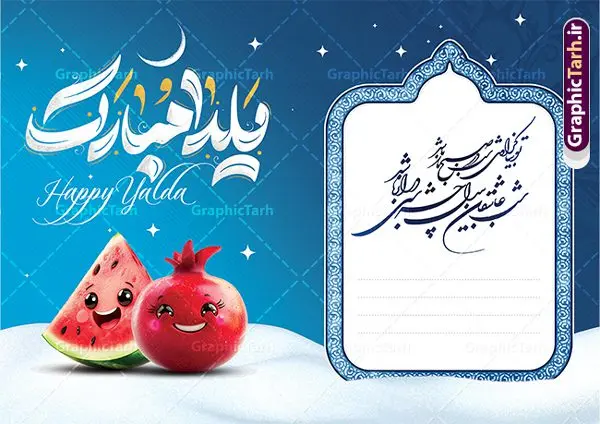 یلدا مبارک
Happy Yalda
شب عاشقان بیدل چه شبی دراز باشد
تو بیا کز اول شب در صبح باز باشد
GraphicTarh.ir
GraphicTarh